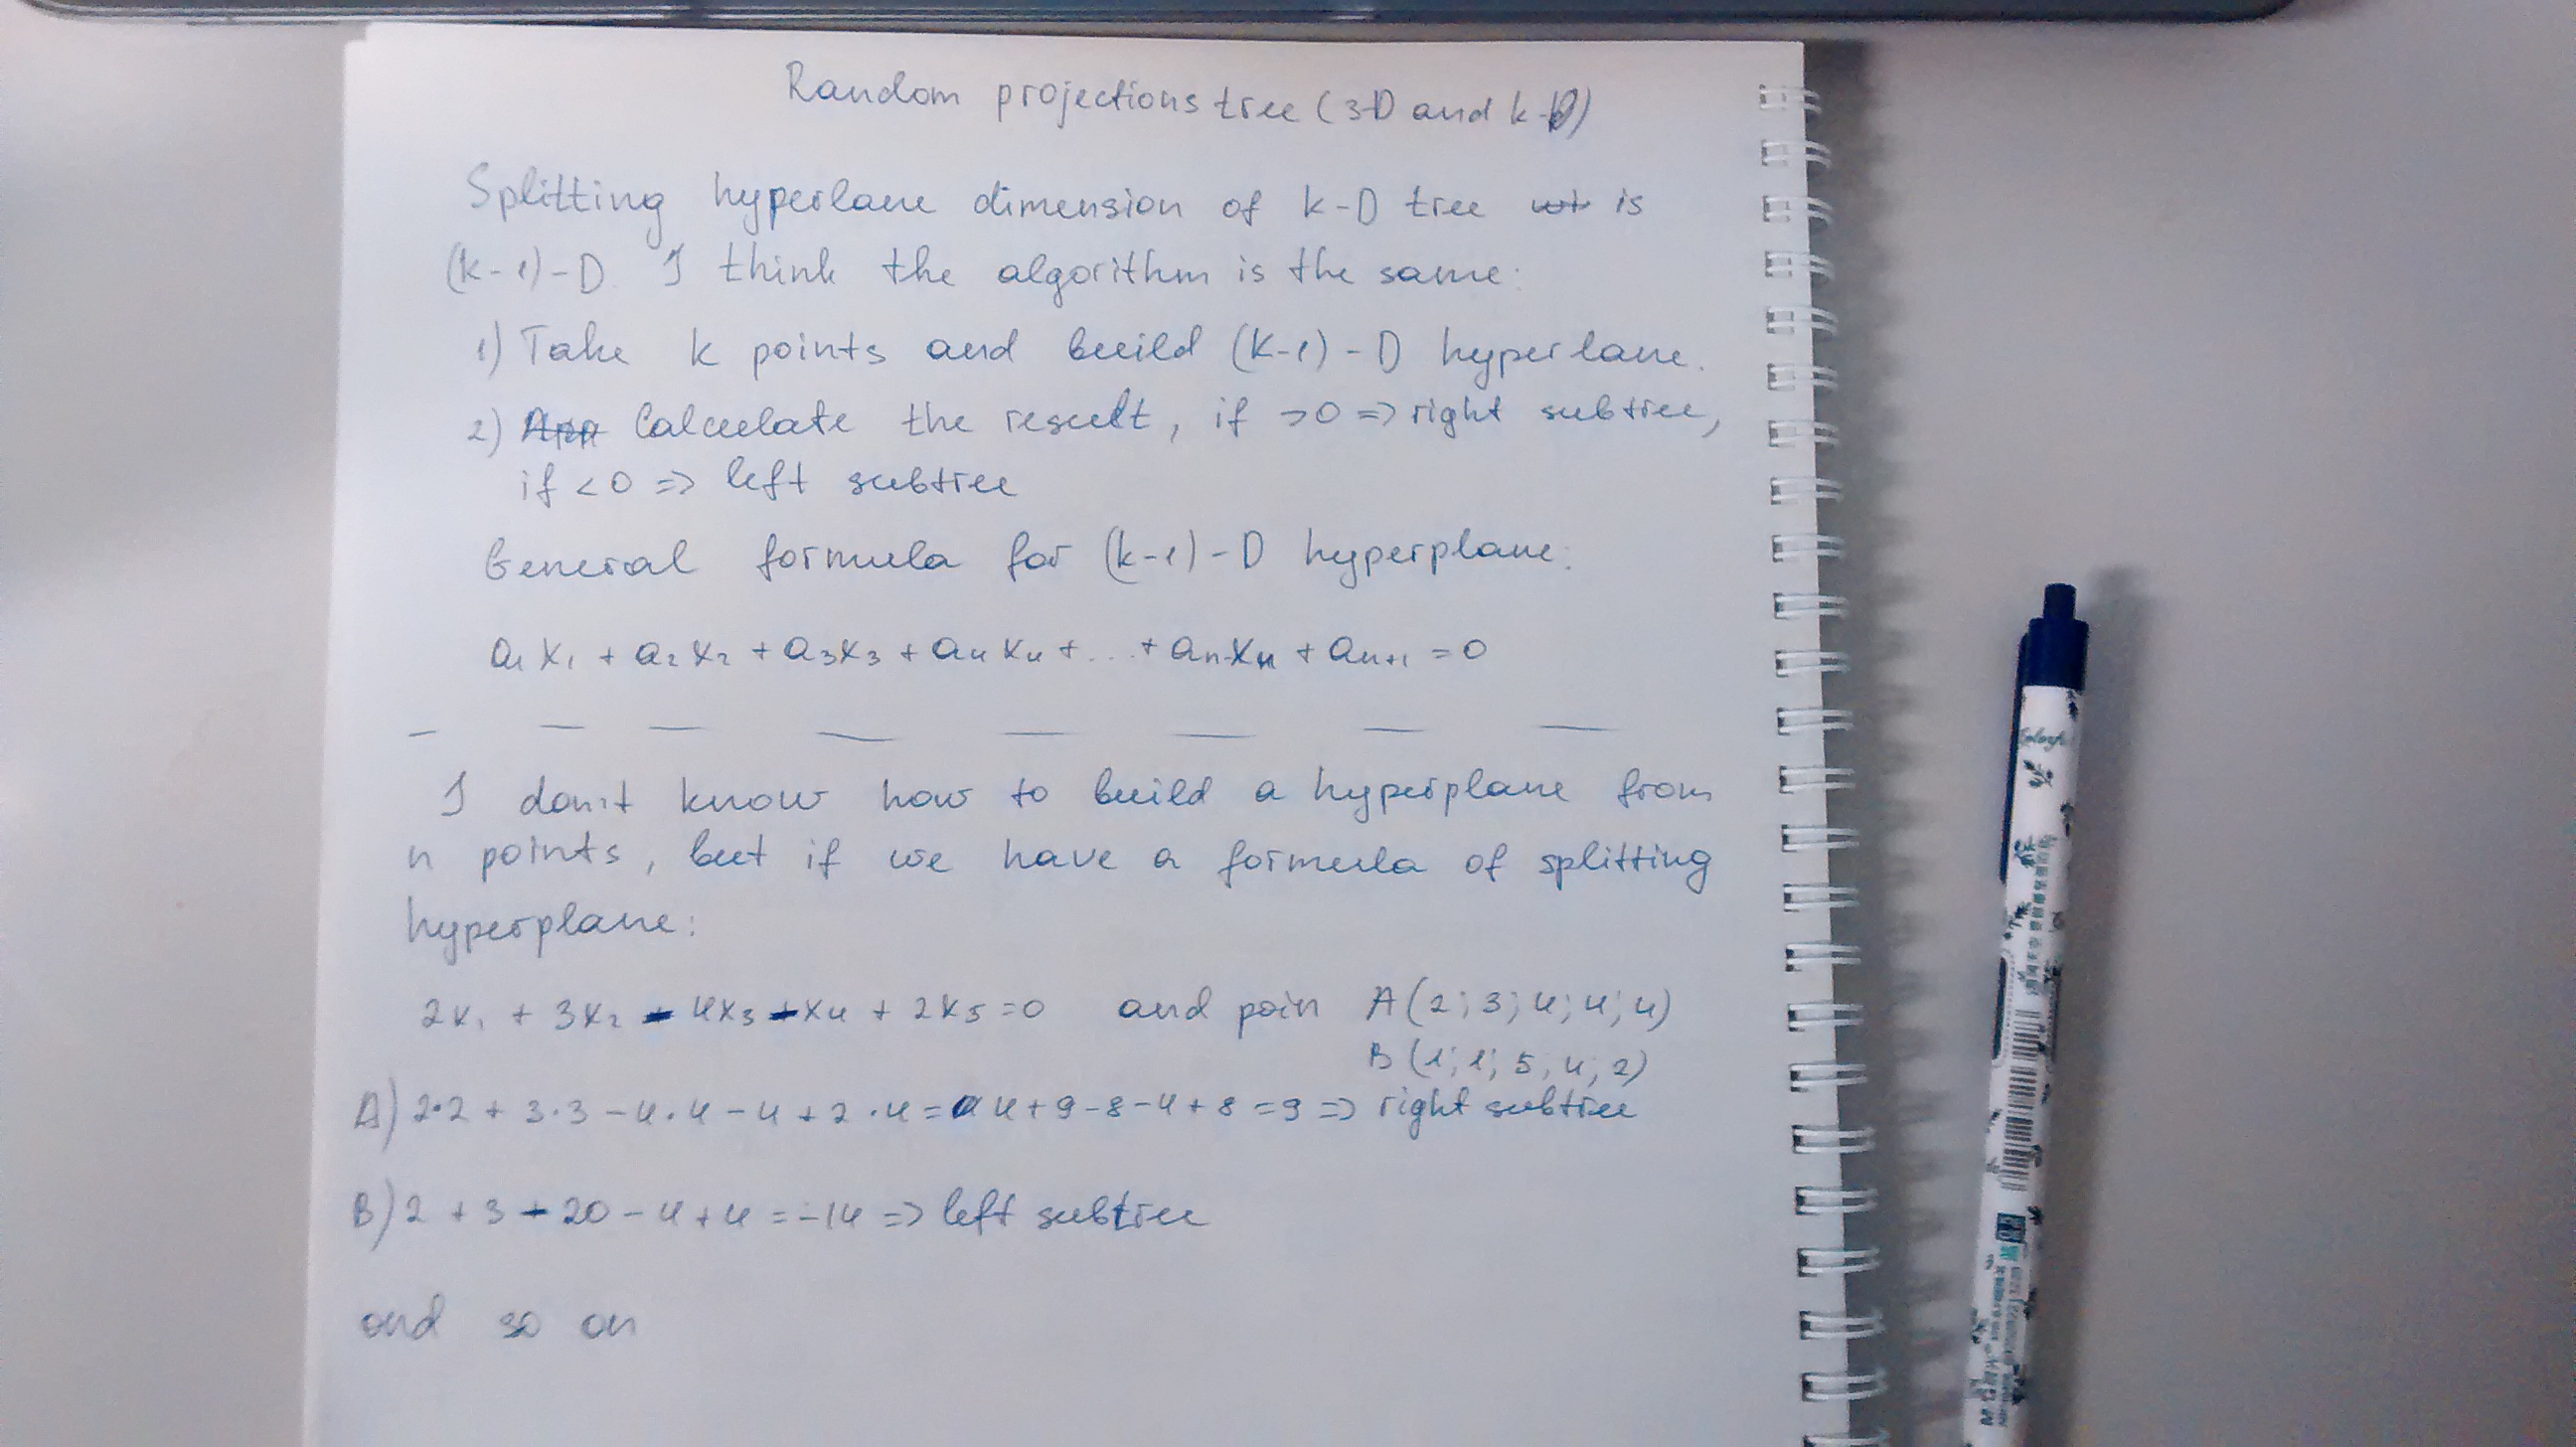 Random projections tree (3-D and k-D)
Splitting hyperlane dimension of k-D tree is
(k-1)-D. I think the algorithm is the same:
1) Take k points and build (k-1)-D hyperlane.
2) Calculate the result, if >0 => right subtree,
if <0 => left subtree
General formula for (k-1)-D hyperplane:
a₁x₁ + a₂x₂ + a₃x₃ + a₄x₄ + ... + aₙxₙ + aₙ₊₁ = 0
I don't know how to build a hyperplane from
n points, but if we have a formula of splitting
hyperplane:
2x₁ + 3x₂ - 4x₃ - x₄ + 2x₅ = 0 and poin A(2; 3; 4; 4; 4)
B (1; 1; 5, 4; 2)
A) 2·2 + 3·3 - 4·4 - 4 + 2·4 = 4+9-8-4+8 = 9 => right subtree
B) 2 + 3 - 20 - 4 + 4 = -14 => left subtree
and so on